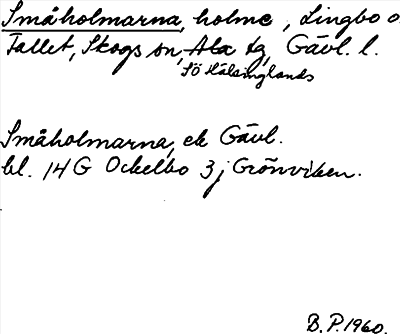 Småholmarna, holme, Lingbo o.
Tallet, Skogs sn, Ala tg, Gävl. l.
Sö Hälsinglands
Småholmarna, ek Gävl.
bl. 14 G Ockelbo 3 j Grönviken.
B. P. 1960.